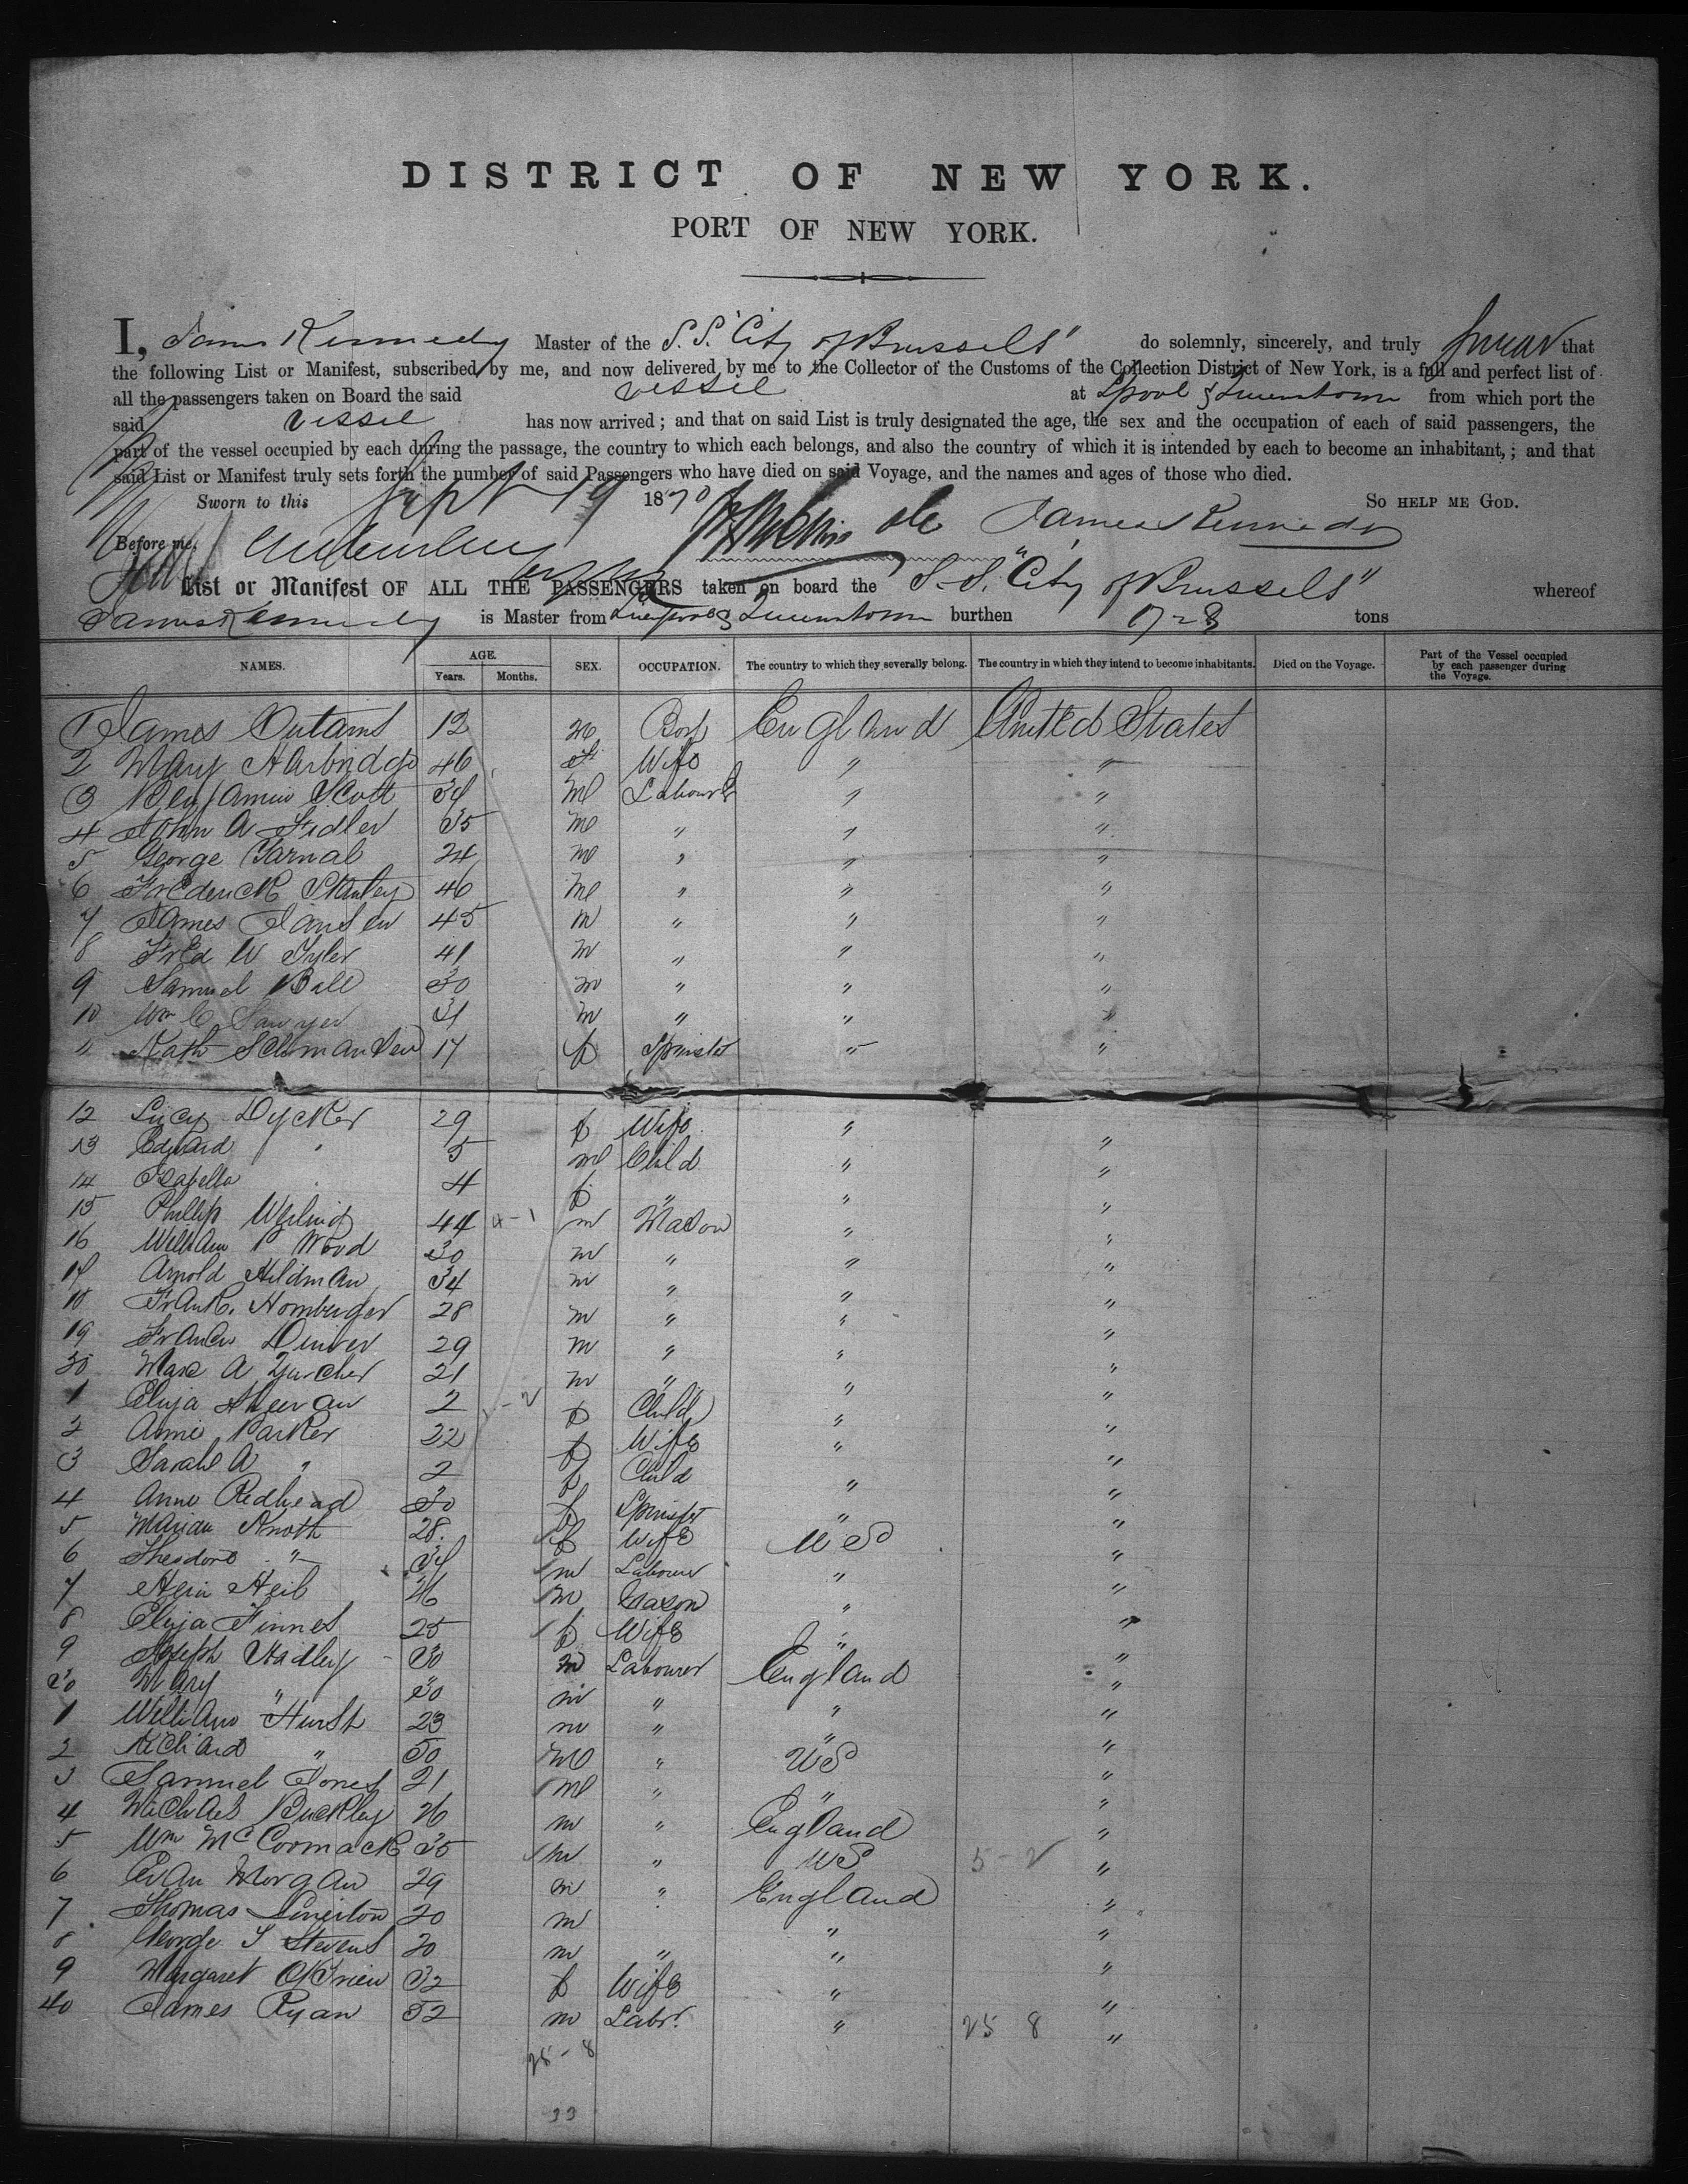 DISTRICT OF NEW YORK.
PORT OF NEW YORK.
I, James Kennedy Master of the S.S. "City of Brussels" do solemnly, sincerely, and truly swear that
the following List or Manifest, subscribed by me, and now delivered by me to the Collector of the Customs of the Collection District of New York, is a full and perfect list of
all the passengers taken on Board the said vessel at Lpool & Queenstown from which port the
said vessel has now arrived; and that on said List is truly designated the age, the sex and the occupation of each of said passengers, the
part of the vessel occupied by each during the passage, the country to which each belongs, and also the country of which it is intended by each to become an inhabitant,; and that
said List or Manifest truly sets forth the number of said Passengers who have died on said Voyage, and the names and ages of those who died.
Sworn to this Sept 19 1870 So HELP ME GOD.
Before me, James Kennedy
List or Manifest OF ALL THE PASSENGERS taken on board the S.S. "City of Brussels" whereof
James Kennedy is Master from Liverpool & Queenstown burthen tons
NAMES. AGE. Years. Months. SEX. OCCUPATION. The country to which they severally belong. The country in which they intend to become inhabitants. Died on the Voyage. Part of the Vessel occupied by each passenger during the Voyage.
1 James 12 m England United States
2 Mary Harbridge 46 f Wife " "
3 Benjamin Scott 34 m Labourer " "
4 John A Fidler 35 m " " "
5 George 24 m " " "
6 Frederick Stanley 46 m " " "
7 James 45 m " " "
8 Fred W Tyler 41 m " " "
9 Samuel Ball 30 m " " "
10 Wm C Sawyer 31 m " " "
" Kath 17 f Spinster " "
12 Lucy Dycker 29 f Wife " "
13 Edward " 5 m Child " "
14 Isabella 4 f " " "
15 Phillip 44 4-1 m Mason " "
16 William P Wood 30 m " " "
17 Arnold Hildman 34 m " " "
18 Frank. Homberger 28 m " " "
19 Francis 29 m " " "
20 A 21 m " " "
1 Eliza 2 f Child " "
2 Annie Parker 22 f Wife " "
3 Sarah A " 2 f Child " "
4 Anne Redhead 30 f Spinster " "
5 Marian Knoth 28. f Wife US "
6 Theodore " 34 m Labourer " "
7 Heib m " "
8 Eliza Finnes 25 f Wife " "
9 Joseph Hadley 30 m Labourer England "
30 Mary " 30 m " " "
1 William Hurst 23 m " " "
2 Richard " 50 m " US "
3 Samuel Jones 21 m " " "
4 Michael Buckley 26 m " England "
5 Wm McCormack 35 m " US "
6 Evan Morgan 29 m " England "
7 Thomas 20 m " "
8 George S Stevens 20 m " " "
9 Margaret O'Brien 32 f Wife " "
40 James Ryan 52 m Labr. " 25 8 "
25-8
33